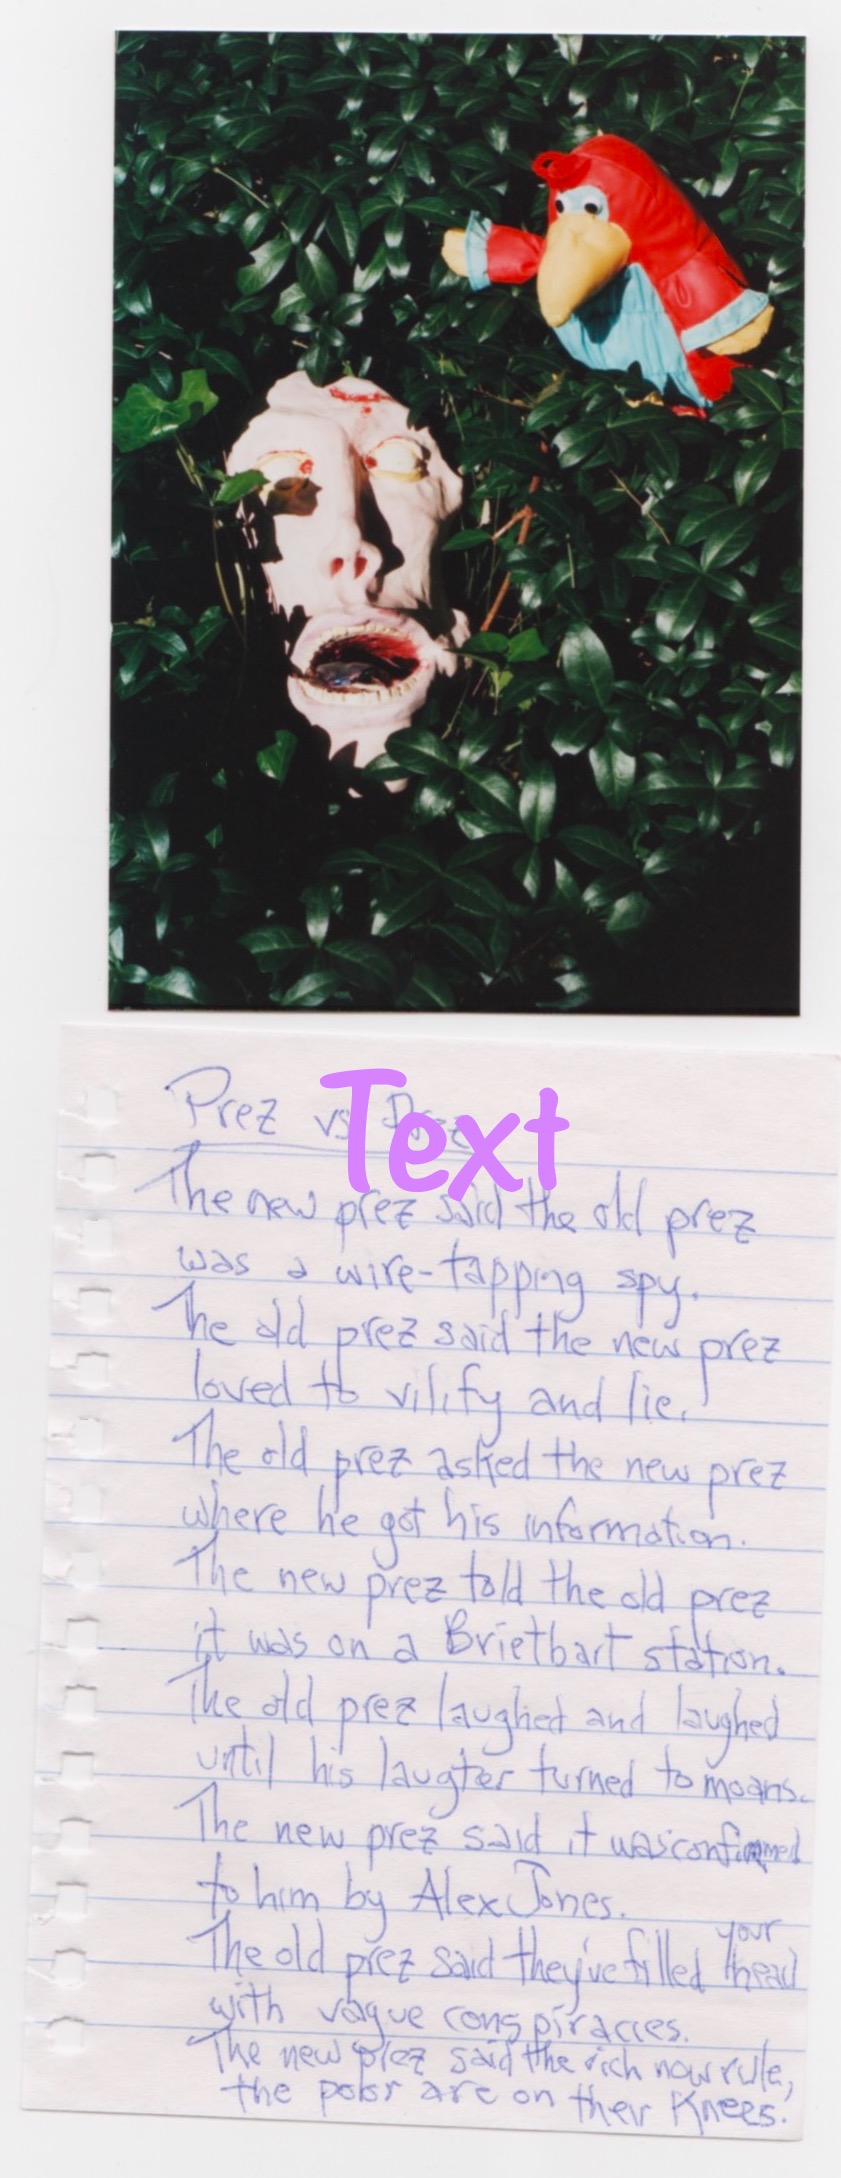 Prez vs Prez
Text
The new prez said the old prez
was a wire-tapping spy.
The old prez said the new prez
loved to vilify and lie.
The old prez asked the new prez
where he got his information.
The new prez told the old prez
it was on a Brietbart station.
The old prez laughed and laughed
until his laugter turned to moans.
The new prez said it was confirmed
to him by Alex Jones.
your
The old prez said they've filled head
with vague conspiracies.
The new prez said the rich now rule,
the poor are on their knees.